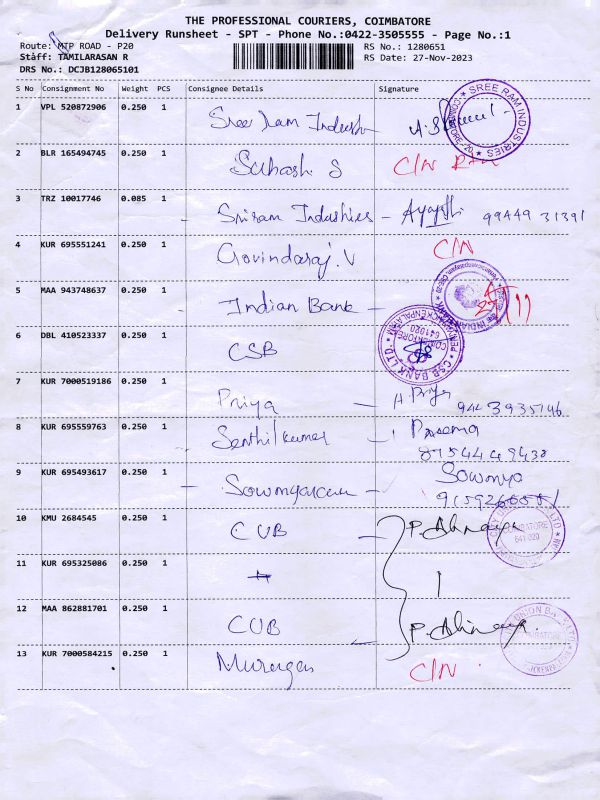 THE PROFESSIONAL COURIERS, COIMBATORE
Delivery Runsheet - SPT - Phone No.:0422-3505555 - Page No.:1
Route: MTP ROAD - P20
RS No.: 1280651
Staff: TAMILARASAN R
RS Date: 27-Nov-2023
DRS No.: DCJB128065101
S No Consignment No Weight PCS Consignee Details Signature
1 VPL 520872906 0.250 1 Sree Ram
SREE RAM INDUSTRIES
2 BLR 165494745 0.250 1 Subash S C/N
3 TRZ 10017746 0.085 1 Sriram Industries - 99449 31391
4 KUR 695551241 0.250 1 Govindaraj.V C/N
5 MAA 943748637 0.250 1 Indian Bank -
6 DBL 410523337 0.250 1 CSB
CSB BANK LTD
641020
7 KUR 7000519186 0.250 1 Priya - A. Priya
8 KUR 695559763 0.250 1 Senthilkumar
8754449438
9 KUR 695493617 0.250 1 - Sowmya
10 KMU 2684545 0.250 1 CUB - P. Abinaya
641 020
11 KUR 695325086 0.250 1
12 MAA 862881701 0.250 1 CUB - P. Abinaya
13 KUR 7000584215 0.250 1 Murugan C/N